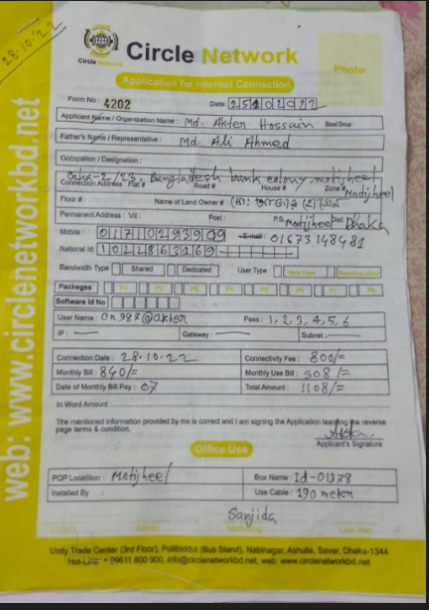 28.10.22
Circle Network
Circle Network
Application for Internet Connection
Photo
Form No : 4202 Date: 25102022
Applicant Name / Organization Name : Md. Akter Hossain Blood Group :
Father's Name / Representative : Md. Ali Ahmed
Occupation / Designation :
Bangladesh bank colony, motijheel
Connection Address : Flat # Road # House # Zone # Motijheel
Floor # Name of Land Owner #
Permanent Address : Vill : Post : P.S Motijheel Dist Dhaka
Mobile : 0171102939 E-mail: 01673148481
National Id: 1022863169
Bandwidth Type Shared Dedicated User Type :
Packages P1
Software Id No
User Name : @akter Pass : 1,2,3,4,5,6
IP : Gateway : Subnet
Connection Date : 28.10.22 Connectivity Fee : 800/=
Monthly Bill : 840/= Monthly Use Bill : 308/=
Date of Monthly Bill Pay : 07 Total Amount : 1108/=
In Word Amount :
The mentioned information provided by me is correct and I am signing the Application the reverse
page terms & condition.
Applicant's Signature
Office Use
POP Locatition : Motijheel Box Name : Id-
Installed By : Use Cable : 190 meter
Sanjida
C.O.O. Admin Marketing Line Man
Unity Trade Center (3rd Floor), Pollibiddut (Bus Stand), Nabinagar, Ashulia, Savar, Dhaka-1344
Hot-Line: + 09611 800 900, info@circlenetworkbd.net, web: www.circlenetworkbd.net
web: www.circlenetworkbd.net